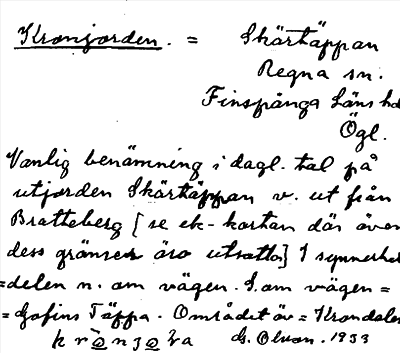 Kronjorden. = Skärtäppan
Regna sn.
Finspånga läns hd
Ögl.
Vanlig benämning i dagl. tal på
utjorden Skärtäppan v. ut från
Bratteberg [se ek-kartan där även
dess gränser äro utsatta] I synnerhet
=delen n. om vägen. S. om vägen =
= Gofins Täppa. Området äv = Krondelen
G. Olson. 1933